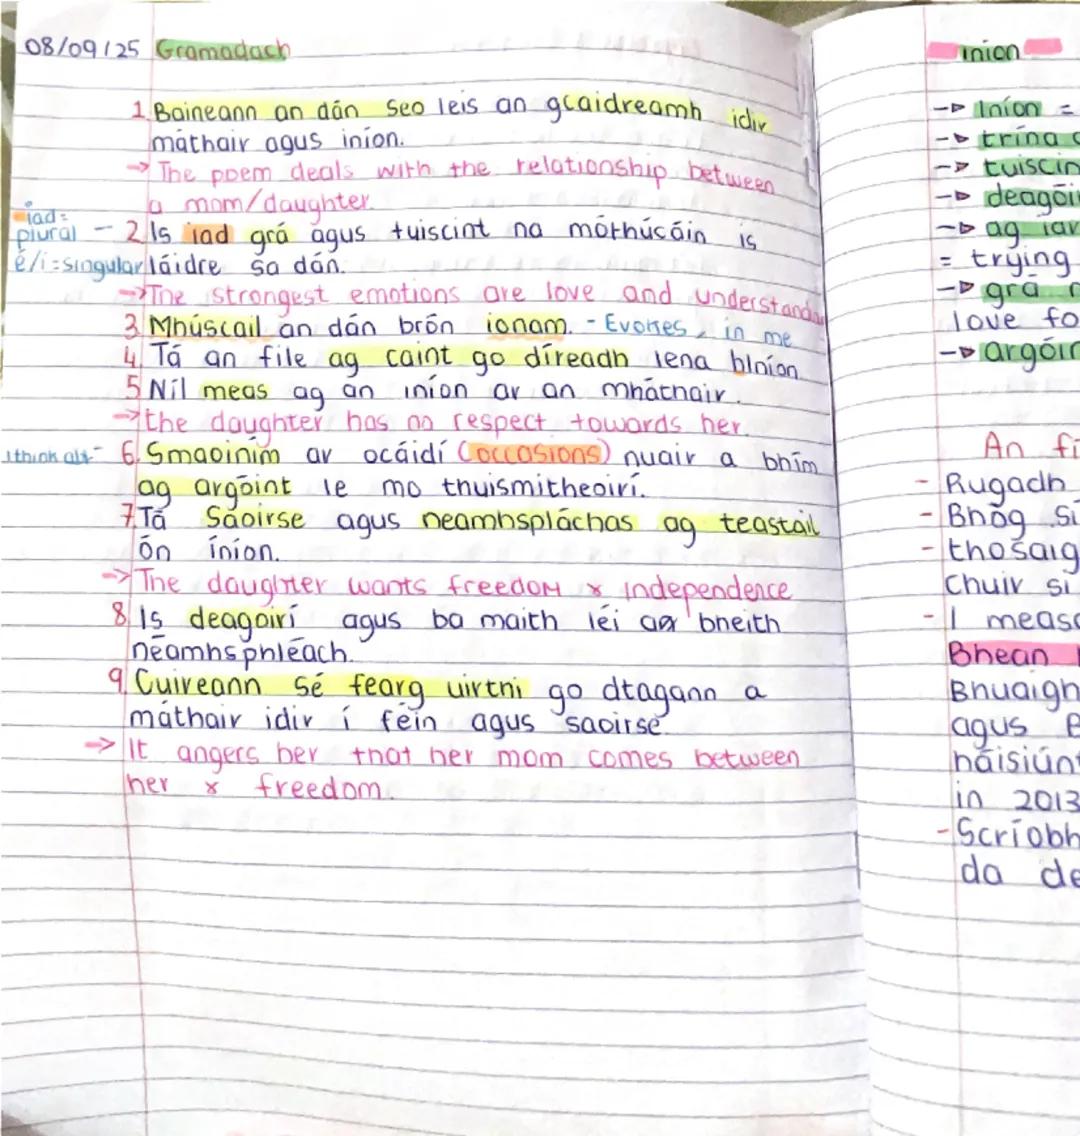 08/09/25 Gramadach
1. Baineann an dán seo leis an gcaidreamh idir
máthair agus iníon.
→ The poem deals with the relationship between
a mom/daughter.
iad =
plural
é/í = singular
2. Is iad grá agus tuiscint na mothúcáin is
láidre sa dán.
→ The strongest emotions are love and
3. Mhúscail an dán brón ionam. - Evokes, in me
4. Tá an file ag caint go díreadh lena biníon
5. Níl meas ag an iníon ar an mháthair.
→ the daughter has no respect towards her.
I think abt -
6. Smaoiním ar ócáidí (occasions) nuair a bhím
ag argóint le mo thuismitheoirí.
7. Tá Saoirse agus neamhspláchas ag teastáil
ón iníon.
→ The daughter wants freedom & independence
8. Is deagoirí agus ba maith léi a bheith
neamhsphléach.
9. Cuireann sé fearg uirthi go dtagann a
máthair idir í féin agus saoirse
→ It angers her that her mom comes between
her & freedom.
iníon
→ Iníon =
→ trína
→ tuiscin
→ deagói
→ ag iar
= trying
→ grá
love fo
→ argóin
An fi
- Rugadh
- Bhog Si
- thosaig
Chuir si
- I measc
Bhean
Bhuaigh
agus
náisiún
in 2013
- Scríobh
da de